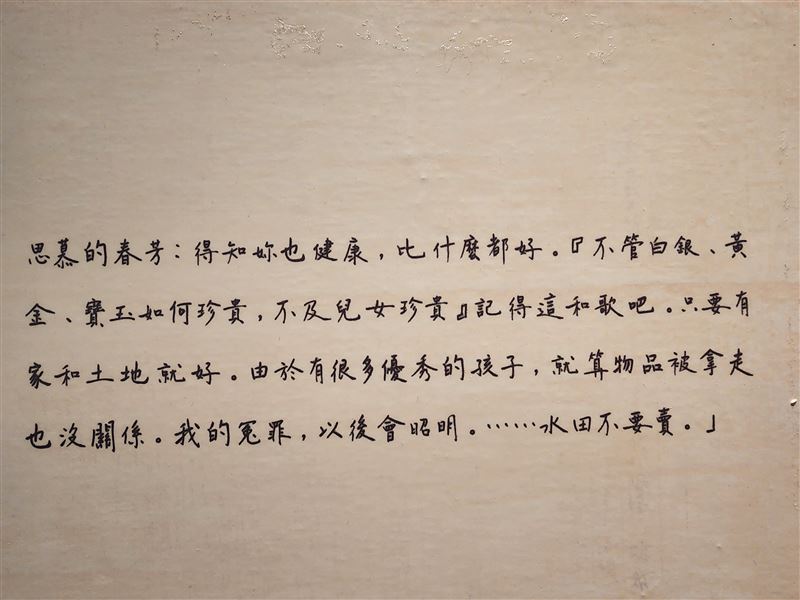 思慕的春芳：得知妳也健康，比什麼都好。『不管白銀、黃
金、寶玉如何珍貴，不及兒女珍貴』記得這和歌吧。只要有
家和土地就好。由於有很多優秀的孩子，就算物品被拿走
也沒關係。我的冤罪，以後會昭明。……水田不要賣。」